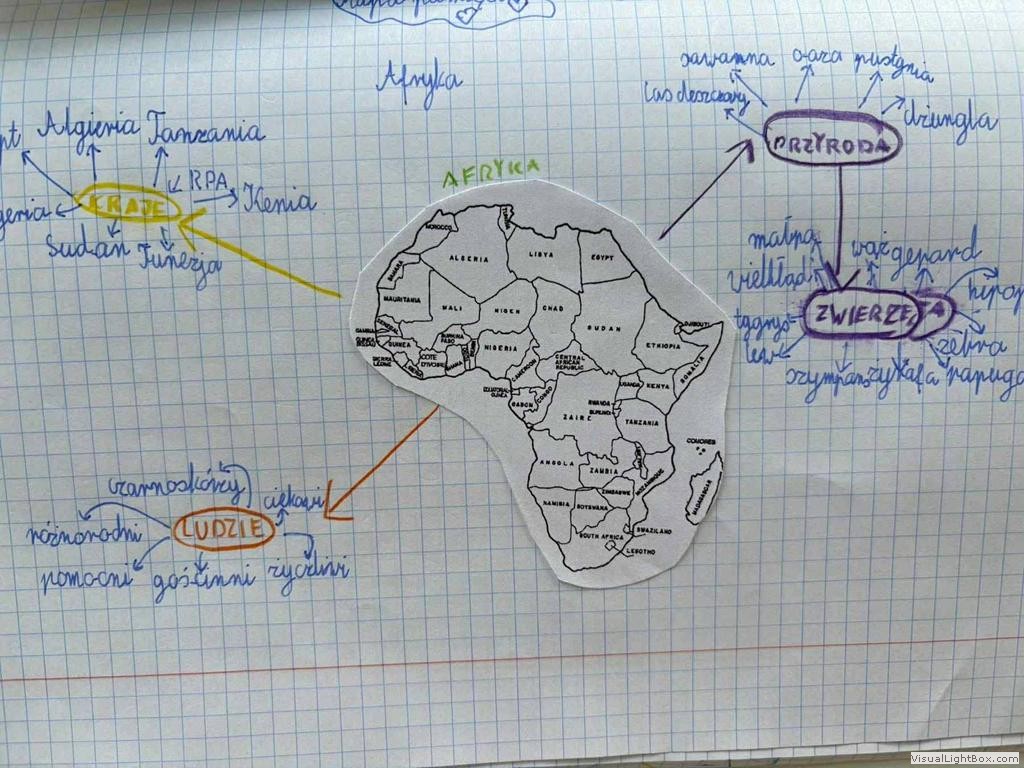 Afryka
sawanna oaza pustynia
las deszczowy
dżungla
PRZYRODA
Algieria Tanzania
RPA
KRAJE
Kenia
Sudan Tunezja
AFRYKA
małpa
wąż gepard
wielbłąd
tygrys
ZWIERZĘTA
lew
zebra
szympans
żyrafa papuga
czarnoskórzy
ciekawi
różnorodni
LUDZIE
pomocni gościnni życzliwi
MOROCCO
TUNISIA
ALGERIA
LIBYA
EGYPT
SAHARA
MAURITANIA
MALI
NIGER
CHAD
SUDAN
DJIBOUTI
SENEGAL
GAMBIA
GUINEA BISSAU
GUINEA
SIERRA LEONE
LIBERIA
COTE D'IVOIRE
BURKINA FASO
GHANA
TOGO
BENIN
NIGERIA
CAMEROON
CENTRAL AFRICAN REPUBLIC
ETHIOPIA
SOMALIA
EQUATORIAL GUINEA
GABON
CONGO
ZAIRE
UGANDA
KENYA
RWANDA
BURUNDI
TANZANIA
COMOROS
ANGOLA
ZAMBIA
MALAWI
MOZAMBIQUE
ZIMBABWE
NAMIBIA
BOTSWANA
MADAGASCAR
SWAZILAND
SOUTH AFRICA
LESOTHO
VisualLightBox.com